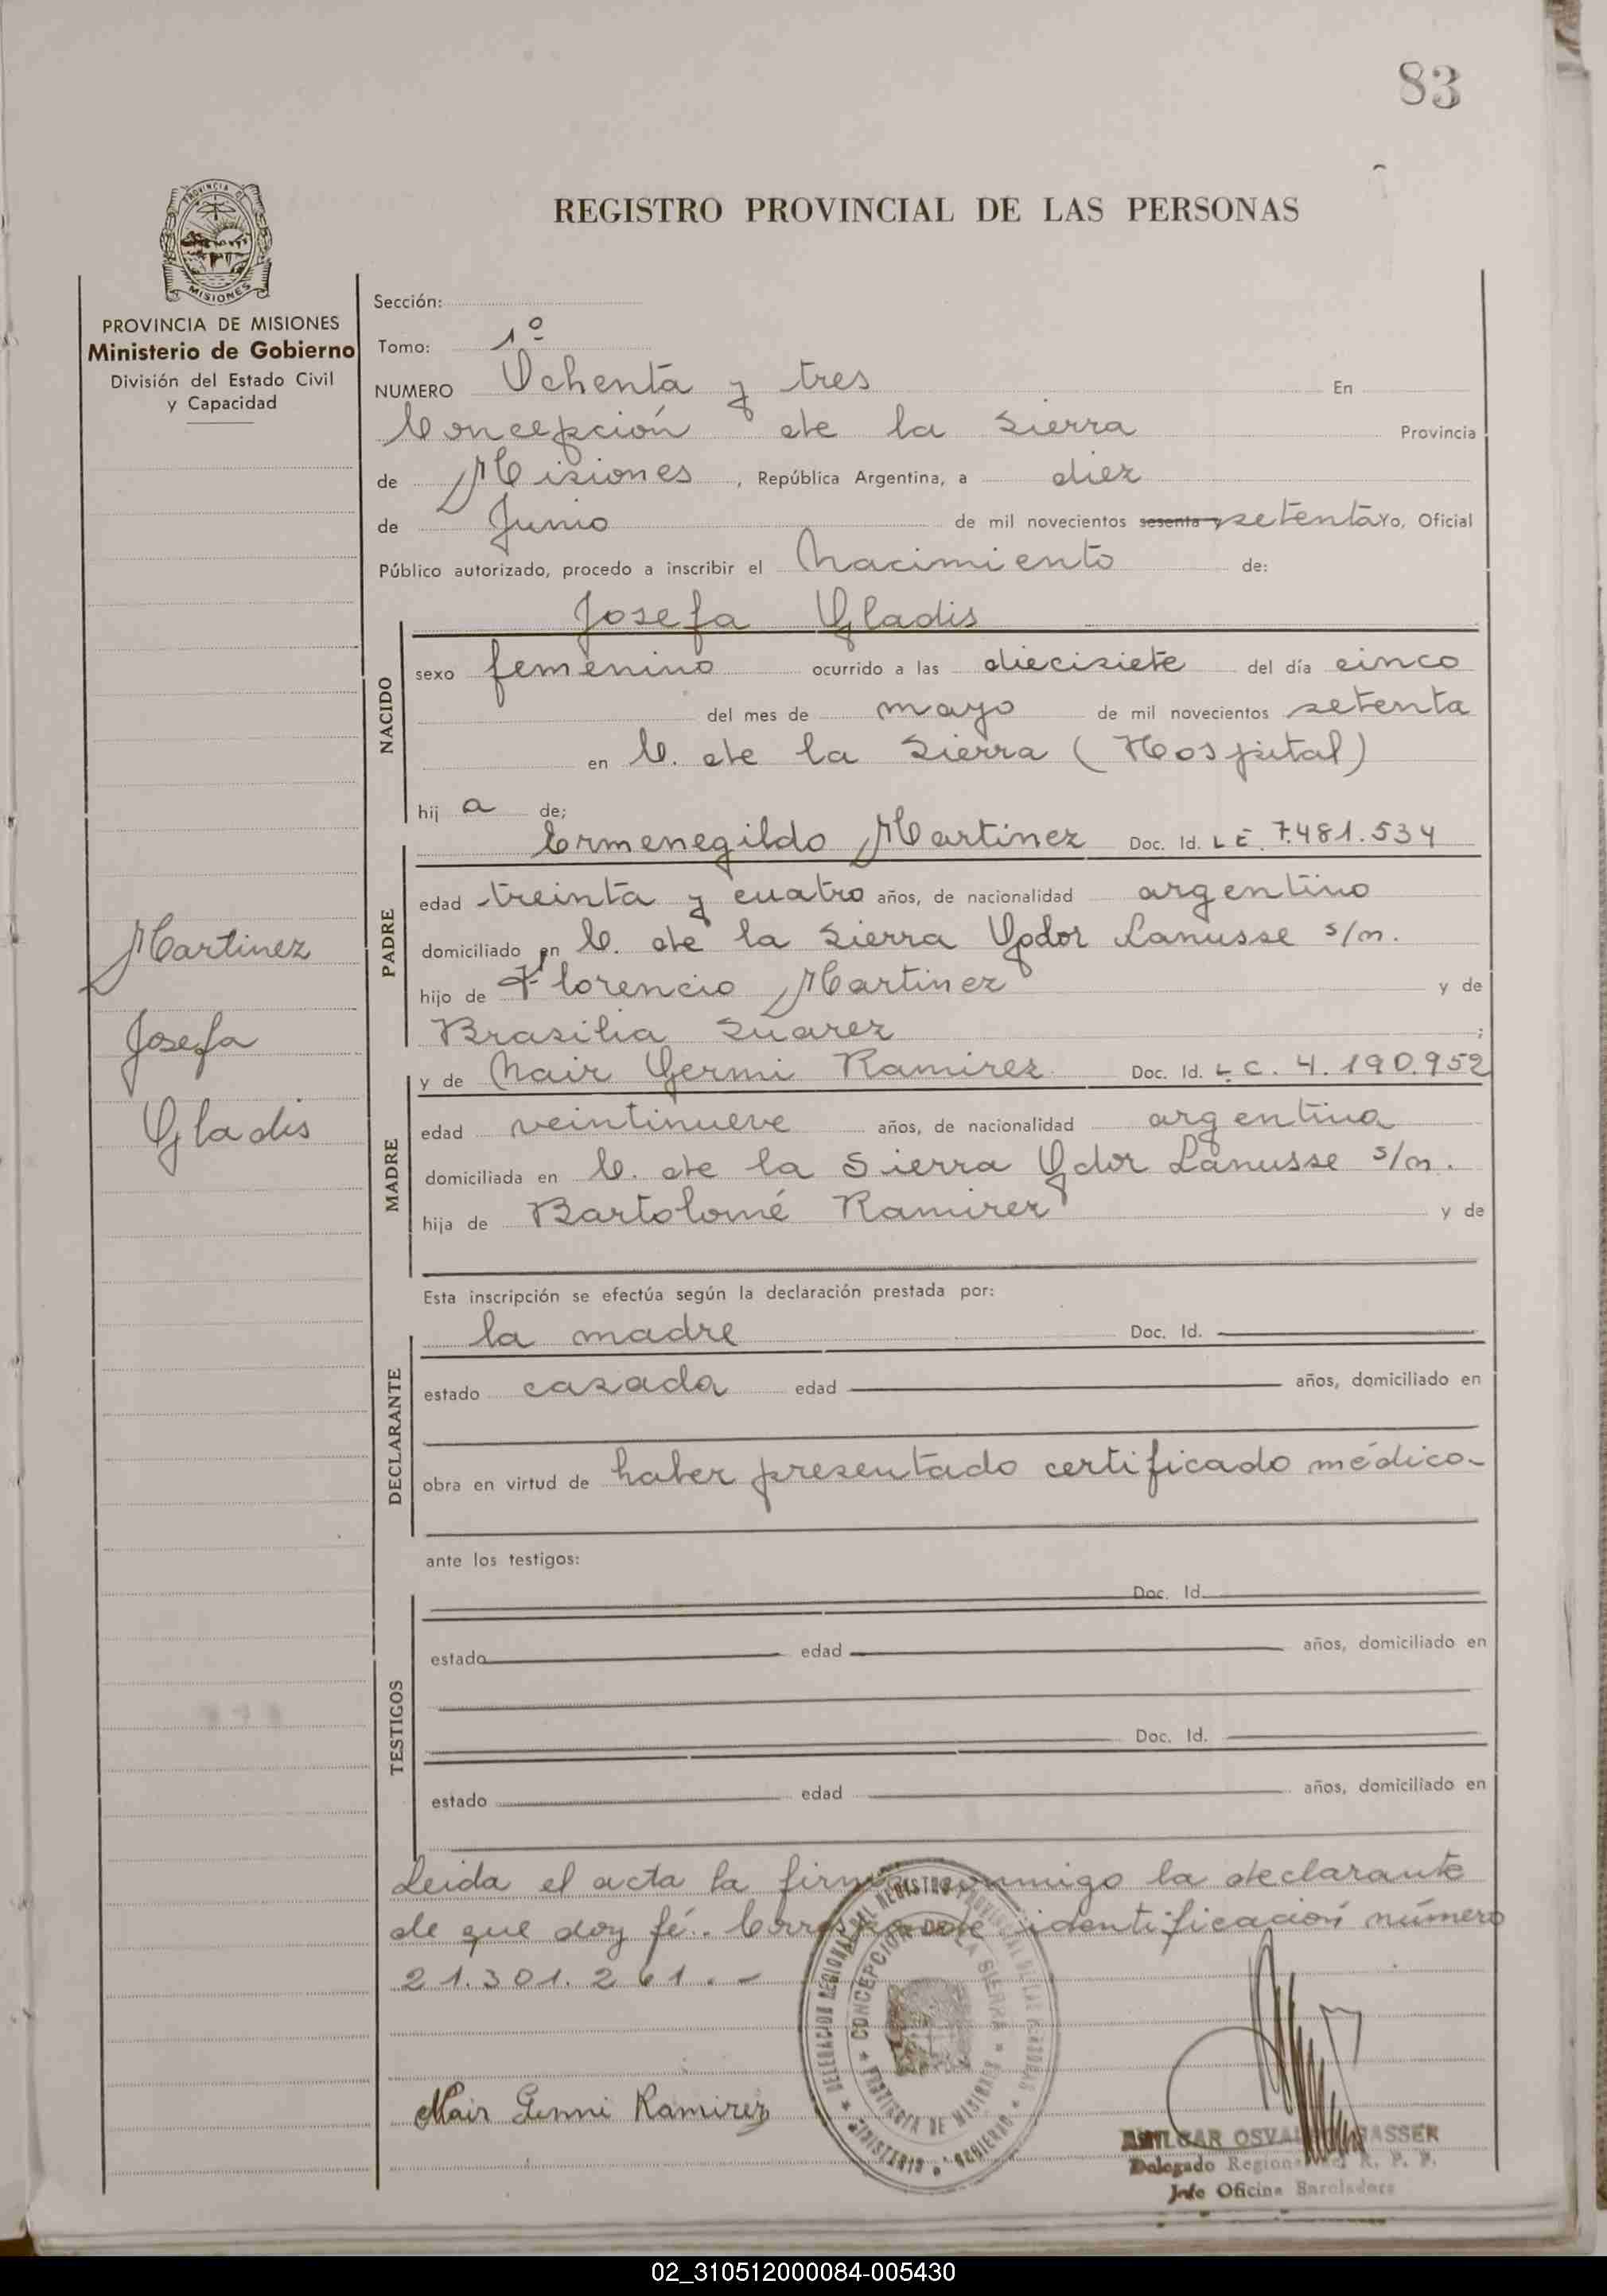 83
PROVINCIA DE
MISIONES
REGISTRO PROVINCIAL DE LAS PERSONAS
PROVINCIA DE MISIONES
Ministerio de Gobierno
División del Estado Civil
y Capacidad
Sección:
Tomo: 1º
NUMERO Ochenta y tres En
Concepción de la Sierra Provincia
de Misiones, República Argentina, a diez
de Junio de mil novecientos sesenta y setenta Yo, Oficial
Público autorizado, procedo a inscribir el Nacimiento de:
Josefa Gladis
NACIDO
sexo femenino ocurrido a las diecisiete del día cinco
del mes de mayo de mil novecientos setenta
en C. de la Sierra (Hospital)
hij a de;
Ermenegildo Martinez Doc. Id. L E. 7.481.534
PADRE
edad treinta y cuatro años, de nacionalidad argentino
domiciliado en C. de la Sierra Gpdor Lanusse s/n.
hijo de Florencio Martinez y de
Brasilia Suarez ;
y de Nair Germi Ramirez Doc. Id. L.C. 4.190.952
MADRE
edad veintinueve años, de nacionalidad argentina
domiciliada en C. de la Sierra Gdor Lanusse s/n.
hija de Bartolomé Ramirez y de
Martinez
Josefa
Gladis
Esta inscripción se efectúa según la declaración prestada por:
la madre Doc. Id.
DECLARANTE
estado casada edad años, domiciliado en
obra en virtud de haber presentado certificado médico-
ante los testigos:
Doc. Id.
TESTIGOS
estado edad años, domiciliado en
Doc. Id.
estado edad años, domiciliado en
Leida el acta la firma conmigo la declarante
de que doy fé.. Corresponde identificación número
21.301.261.-
DELEGACION REGIONAL DEL REGISTRO PROVINCIAL DE LAS PERSONAS
CONCEPCION DE LA SIERRA
PROVINCIA DE MISIONES
MINISTERIO GOBIERNO
Nair Germi Ramirez
OSVALDO
Delegado Regional del R. P. P.
Jefe Oficina
02_310512000084-005430